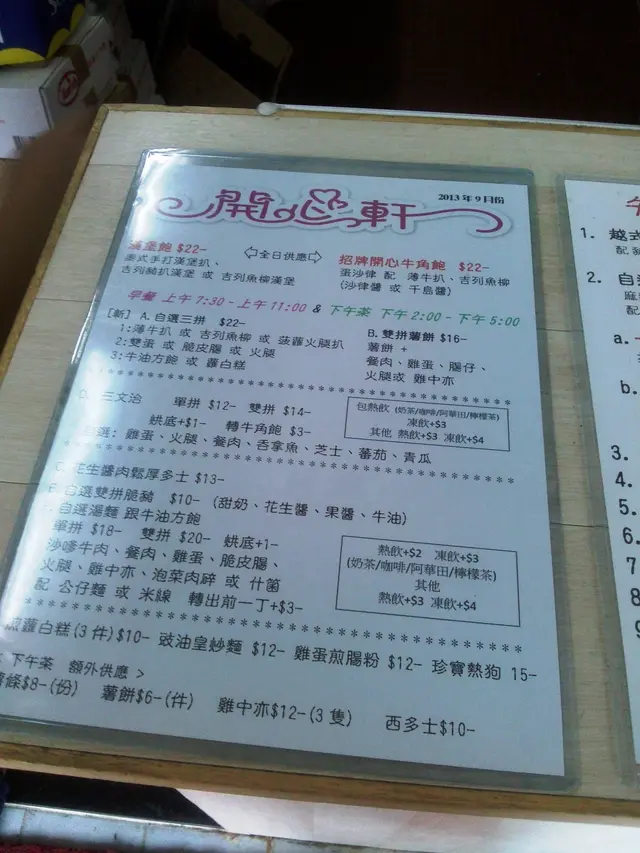 2013 年 9 月份
開心軒
漢堡飽 $22-
泰式手打漢堡扒、
吉列豬扒漢堡 或 吉列魚柳漢堡
全日供應
招牌開心牛角飽 $22-
蛋沙律 配 薄牛扒、吉列魚柳
(沙律醬 或 千島醬)
早餐 上午 7:30 - 上午 11:00 & 下午茶 下午 2:00 - 下午 5:00
[新] A.自選三拼 $22-
1:薄牛扒 或 吉列魚柳 或 菠蘿火腿扒
2:雙蛋 或 脆皮腸 或 火腿
3:牛油方飽 或 蘿白糕
B.雙拼薯餅 $16-
薯餅 +
餐肉、雞蛋、腸仔、
火腿或 雞中亦
三文治 單拼 $12- 雙拼 $14-
烘底+$1- 轉牛角飽 $3-
選: 雞蛋、火腿、餐肉、吞拿魚、芝士、蕃茄、青瓜
包熱飲 (奶茶/咖啡/阿華田/檸檬茶)
凍飲+$3
其他 熱飲+$3 凍飲+$4
花生醬肉鬆厚多士 $13-
自選雙拼脆豬 $10- (甜奶、花生醬、果醬、牛油)
自選湯麵 跟牛油方飽
單拼 $18- 雙拼 $20- 烘底+1-
沙嗲牛肉、餐肉、雞蛋、脆皮腸、
火腿、雞中亦、泡菜肉碎 或 什菌
配 公仔麵 或 米線 轉出前一丁+$3-
熱飲+$2 凍飲+$3
(奶茶/咖啡/阿華田/檸檬茶)
其他
熱飲+$3 凍飲+$4
蘿白糕(3 件)$10- 豉油皇炒麵 $12- 雞蛋煎腸粉 $12- 珍寶熱狗 15-
下午茶 額外供應 >
條$8-(份) 薯餅$6-(件) 雞中亦$12-(3 隻) 西多士$10-
1. 越式
2. 自
a.
b.
3.
4.
5.
6.
7
8